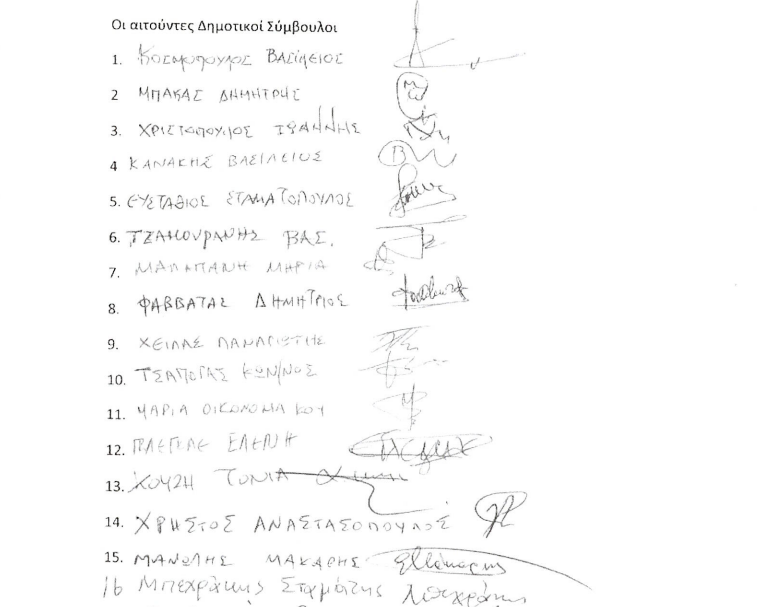 Οι αιτούντες Δημοτικοί Σύμβουλοι
1. ΚΟΣΜΟΠΟΥΛΟΣ ΒΑΣΙΛΕΙΟΣ
2 ΜΠΑΚΑΣ ΔΗΜΗΤΡΗΣ
3. ΧΡΙΣΤΟΠΟΥΛΟΣ ΙΩΑΝΝΗΣ
4 ΚΑΝΑΚΗΣ ΒΑΣΙΛΕΙΟΣ
5. ΕΥΣΤΑΘΙΟΣ ΣΤΑΜΑΤΟΠΟΥΛΟΣ
6. ΤΖΑΜΟΥΡΑΝΗΣ ΒΑΣ.
7. ΜΑΡΙΑ
8. ΦΑΒΒΑΤΑΣ ΔΗΜΗΤΡΙΟΣ
9. ΧΕΙΛΑΣ ΠΑΝΑΓΙΩΤΗΣ
10. ΤΣΑΠΟΓΑΣ ΚΩΝ/ΝΟΣ
11. ΜΑΡΙΑ ΟΙΚΟΝΟΜΑΚΟΥ
12. ΕΛΕΝΗ
13. ΧΟΥΖΗ ΤΟΝΙΑ
14. ΧΡΗΣΤΟΣ ΑΝΑΣΤΑΣΟΠΟΥΛΟΣ
15. ΜΑΝΩΛΗΣ ΜΑΚΑΡΗΣ
16 Μπεχράκης Σταμάτης